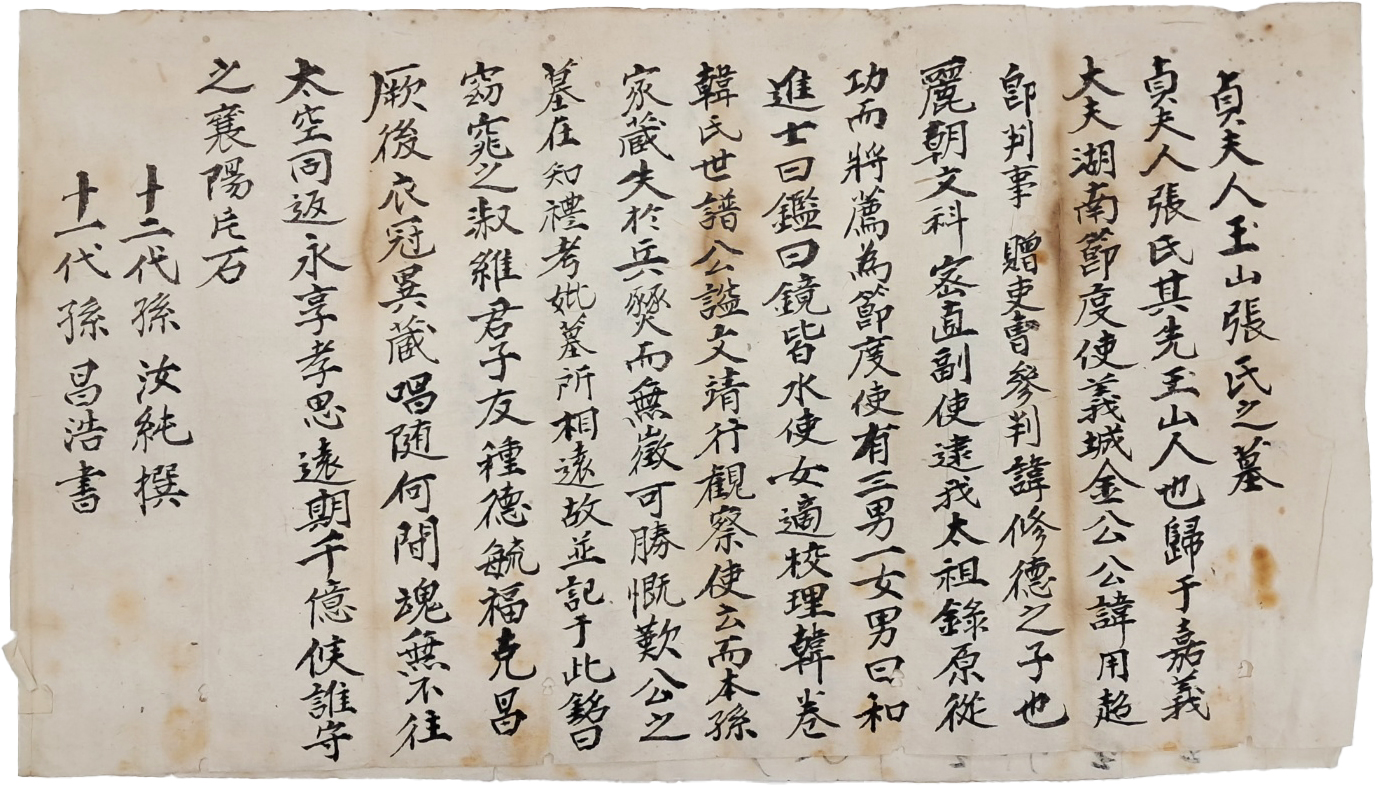 貞夫人玉山張氏之墓
貞夫人張氏其先玉山人也歸于嘉義
大夫湖南節度使義城金公公諱用超
郎判事 贈吏曹參判諱修德之子也
麗朝文科密直副使逮我太祖錄原從
功而將薦為節度使有三男一女男曰和
進士曰鑑曰鏡皆水使女適校理韓卷
韓氏世譜公謚文靖行觀察使云而本孫
家蔵失於兵燹而無徵可勝慨歎公之
墓在知禮考妣墓所相遠故並記于此銘曰
窈窕之淑維君子友種德毓福克昌
厥後衣冠異蔵唱随何閒魂無不往
太空同返永享孝思遠期千億俟誰守
之襄陽片石
十二代孫汝純撰
十一代孫昌浩書